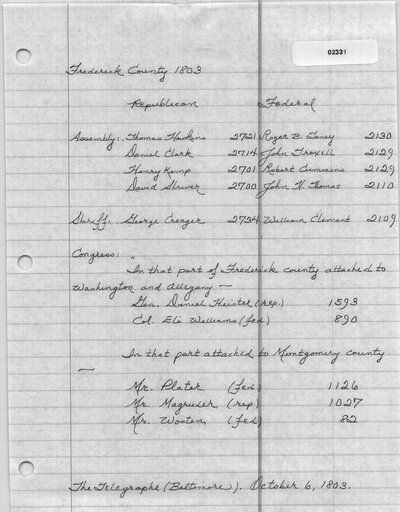 02331
Frederick County 1803
Republican Federal
Assembly: Thomas Hawkins 2721 Roger B. Taney 2130
Daniel Clark 2714 John Troxell 2129
Henry Kemp 2701 Robert Cummins 2129
David Shriver 2700 John H. Thomas 2110
Sheriff: George Creager 2734 William Clement 2109
Congress: "
In that part of Frederick county attached to
Washington and Allegany —
Gen. Daniel Heister (rep.) 1593
Col. Eli Williams (fed) 890
In that part attached to Montgomery county
—
Mr. Plater (fed) 1126
Mr. Magruder (rep) 1027
Mr. Wooten (fed) 82
The Telegraphe (Baltimore). October 6, 1803.